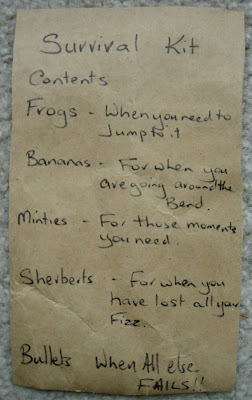 Survival Kit
Contents
Frogs - When you need to
Jump to it
Bananas - For when you
are going around the
Bend.
Minties - For those moments
you need.
Sherberts - For when you
have lost all your
Fizz.
Bullets When All else
FAILS!!